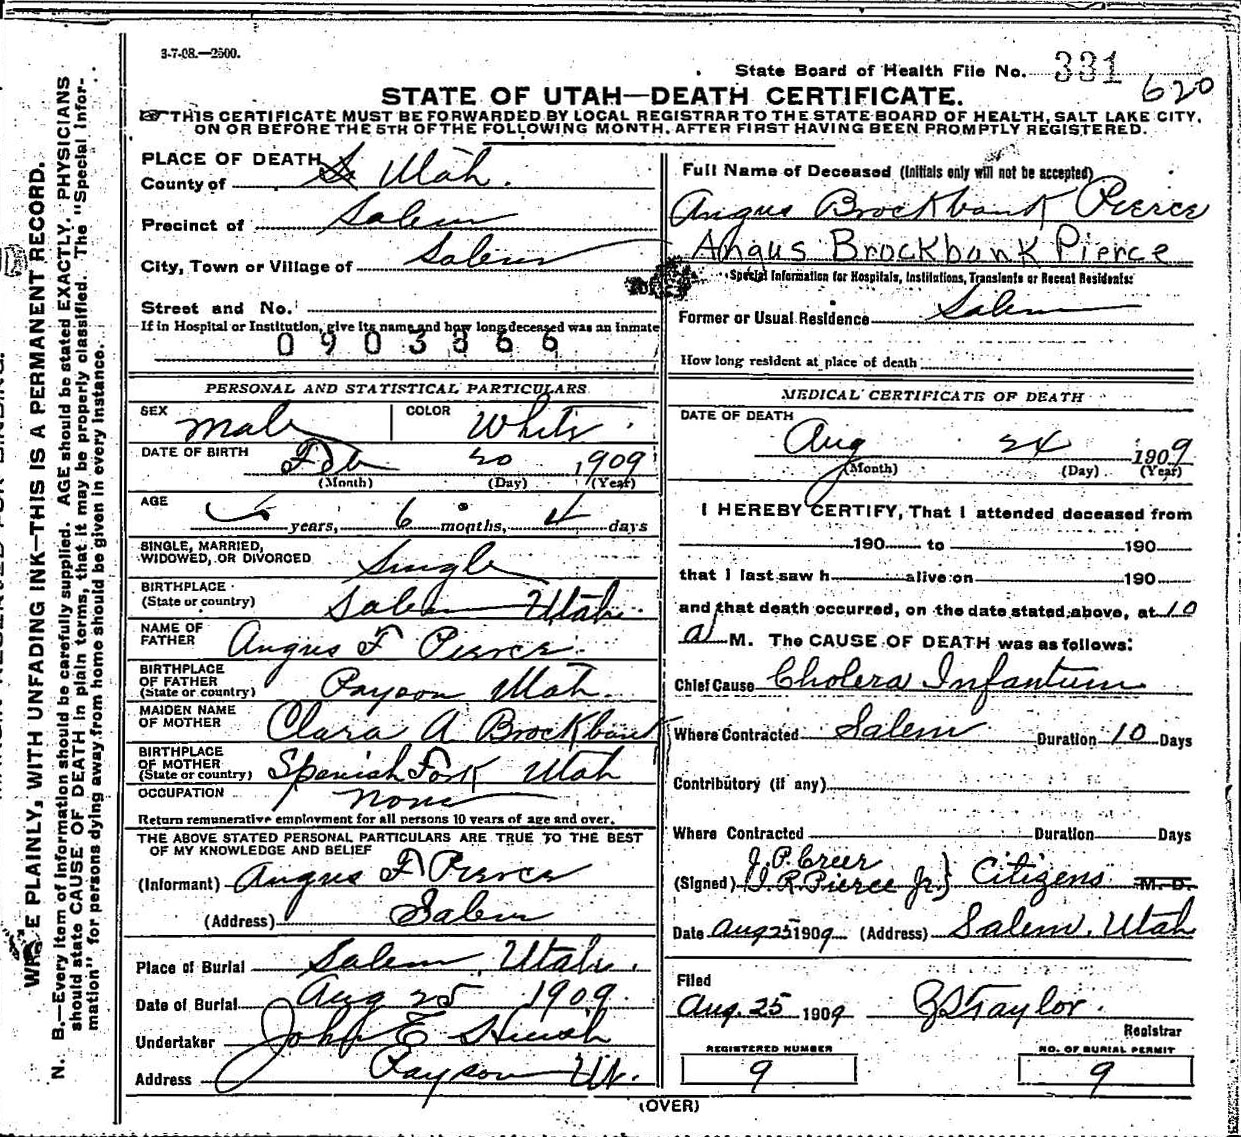 3-7-08.—2500.
State Board of Health File No. 331
620
STATE OF UTAH—DEATH CERTIFICATE.
THIS CERTIFICATE MUST BE FORWARDED BY LOCAL REGISTRAR TO THE STATE BOARD OF HEALTH, SALT LAKE CITY,
ON OR BEFORE THE 5TH OF THE FOLLOWING MONTH, AFTER FIRST HAVING BEEN PROMPTLY REGISTERED.
PLACE OF DEATH
County of Utah.
Precinct of Salem
City, Town or Village of Salem
Street and No.
If in Hospital or Institution, give its name and how long deceased was an inmate
0903366
PERSONAL AND STATISTICAL PARTICULARS
SEX Male COLOR White
DATE OF BIRTH Feb 20 1909
(Month) (Day) (Year)
AGE years, 6 months, 4 days
SINGLE, MARRIED,
WIDOWED, OR DIVORCED Single
BIRTHPLACE
(State or country) Salem Utah
NAME OF
FATHER Angus F Pierce
BIRTHPLACE
OF FATHER
(State or country) Payson Utah.
MAIDEN NAME
OF MOTHER Clara A Brockbank
BIRTHPLACE
OF MOTHER
(State or country) Spanish Fork Utah
OCCUPATION None
Return remunerative employment for all persons 10 years of age and over.
THE ABOVE STATED PERSONAL PARTICULARS ARE TRUE TO THE BEST
OF MY KNOWLEDGE AND BELIEF
(Informant) Angus F Pierce
(Address) Salem
Place of Burial Salem, Utah.
Date of Burial Aug 25 1909.
Undertaker John E
Address Payson Ut.
Full Name of Deceased (Initials only will not be accepted)
Angus Brockbank Pierce
Angus Brockbank Pierce
Special Information for Hospitals, Institutions, Transients or Recent Residents:
Former or Usual Residence Salem
How long resident at place of death
MEDICAL CERTIFICATE OF DEATH
DATE OF DEATH
Aug 24 1909
(Month) (Day) (Year)
I HEREBY CERTIFY, That I attended deceased from
190 to 190
that I last saw h alive on 190
and that death occurred, on the date stated above, at 10
a M. The CAUSE OF DEATH was as follows:
Chief Cause Cholera Infantum
Where Contracted Salem Duration 10 Days
Contributory (if any)
Where Contracted Duration Days
J. P. Creer
(Signed) R. Pierce Jr } Citizens M. D.
Date Aug 25 1909 (Address) Salem, Utah
Filed
Aug. 25 1909 Taylor.
Registrar
REGISTERED NUMBER
9
NO. OF BURIAL PERMIT
9
(OVER)
WRITE PLAINLY, WITH UNFADING INK—THIS IS A PERMANENT RECORD.
N. B.—Every item of information should be carefully supplied. AGE should be stated EXACTLY. PHYSICIANS
should state CAUSE OF DEATH in plain terms, that it may be properly classified. The "Special Infor-
mation" for persons dying away from home should be given in every instance.